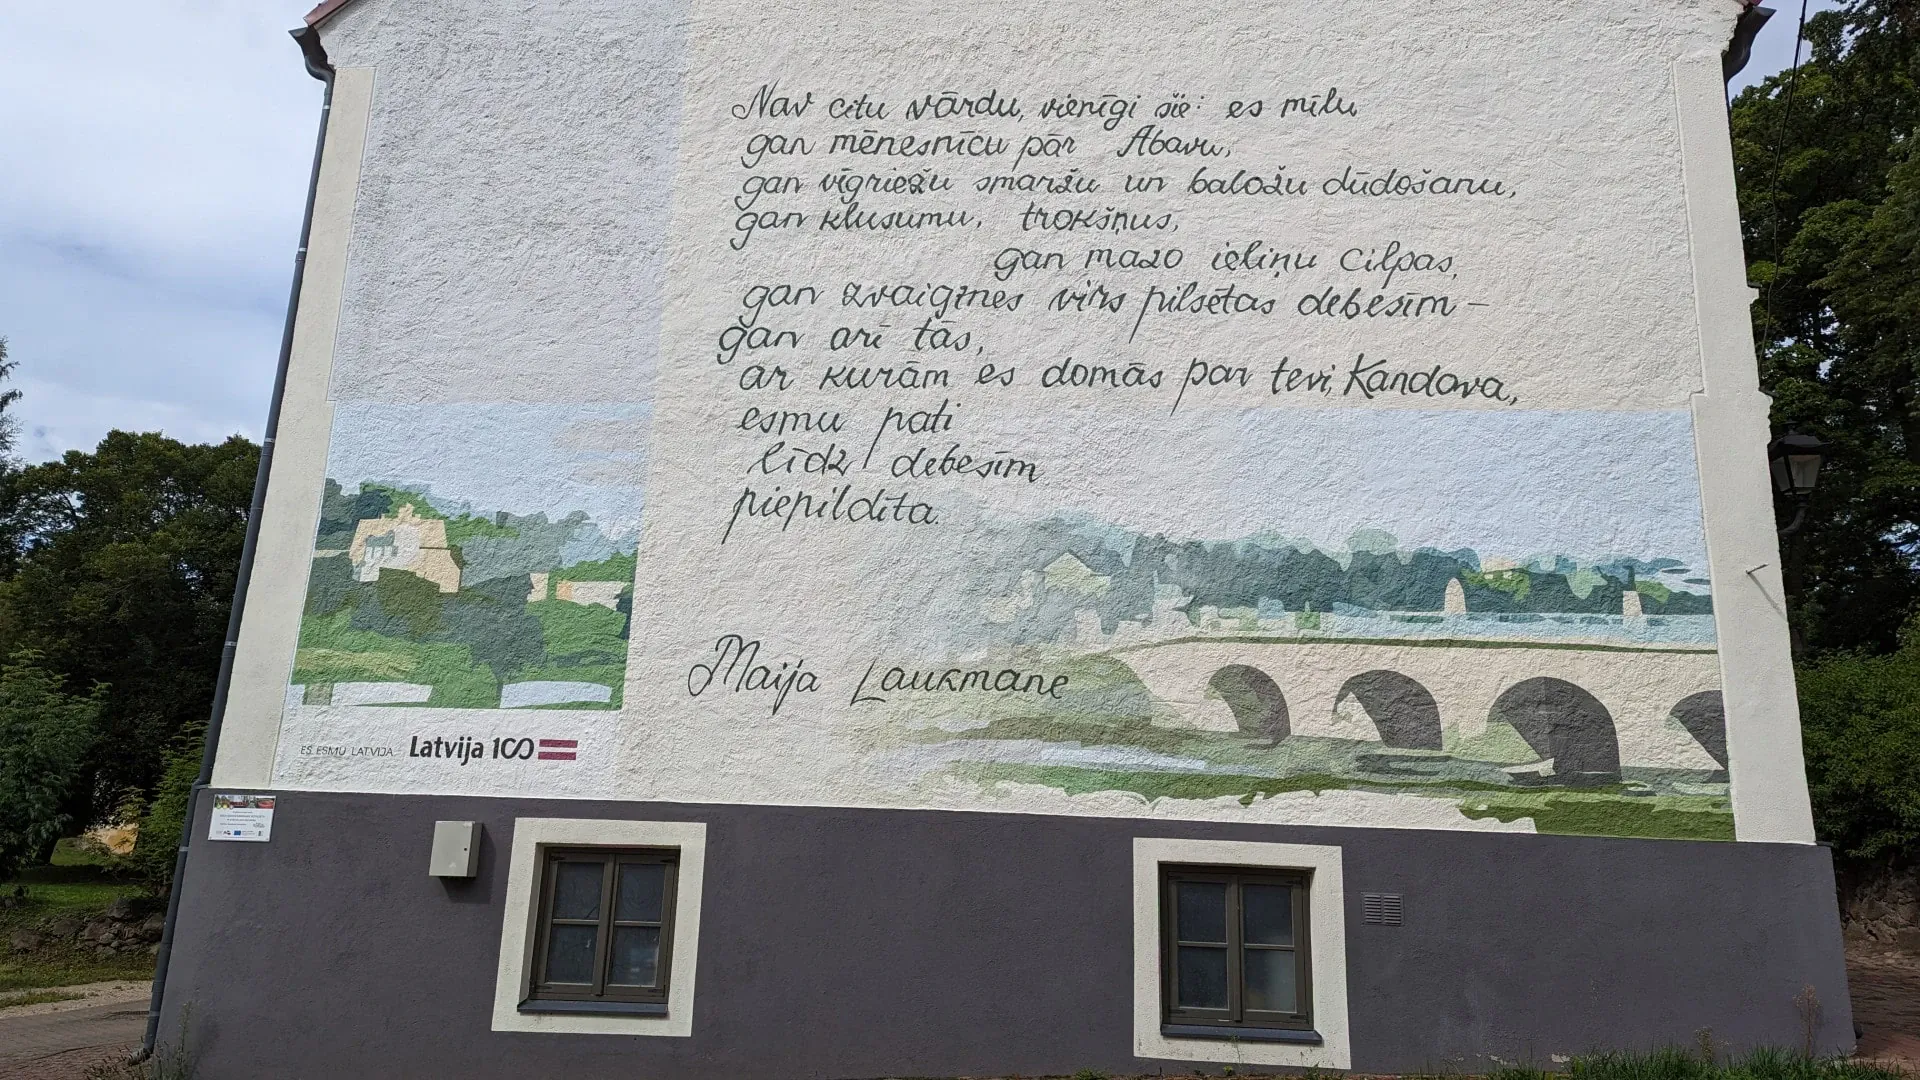 Nav citu vārdu, vienīgi šie: es mīlu
gan mēnesnīcu pār Abavu,
gan vīgriežu smaržu un baložu dūdošanu,
gan klusumu, trokšņus,
gan mazo ieliņu cilpas,
gan zvaigznes virs pilsētas debesīm –
gan arī tās,
ar kurām es domās par tevi, Kandava,
esmu pati
līdz debesīm
piepildīta.
Maija Laukmane
ES ESMU LATVIJA Latvija 100